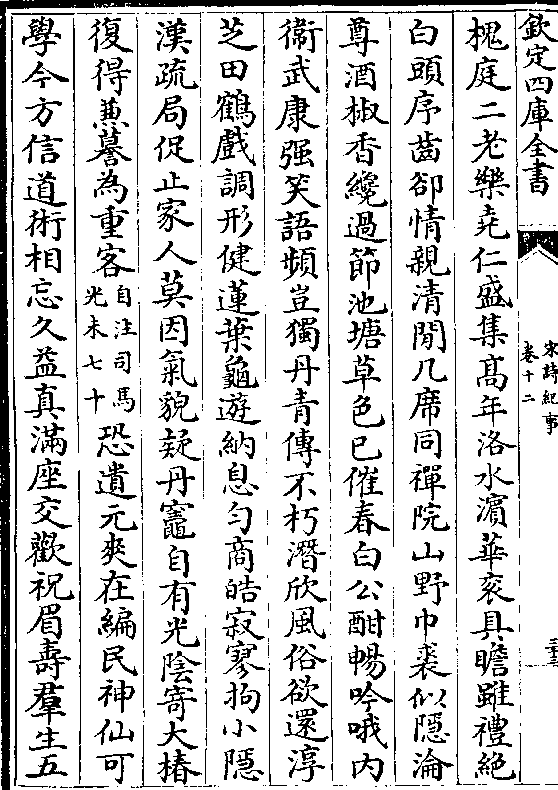 欽定四庫全書
宋詩紀事
卷十二
槐庭二老樂堯仁盛集髙年洛水濵華衮具瞻雖禮絶
白頭序齒卻情親清閒几席同禪院山野巾裘似隱淪
尊酒椒香纔過節池塘草色已催春白公酣暢吟哦内
衞武康强笑語頻豈獨丹青傳不朽潛欣風俗欲還淳
芝田鶴戲調形健蓮葉龜遊納息匀商皓寂寥拘小隱
漢疏局促止家人莫因氣貌疑丹竈自有光陰寄大椿
復得兼謩為重客自注司馬光未七十恐遺元爽在編民神仙可
學今方信道術相忘久益真滿座交歡祝眉壽羣生五